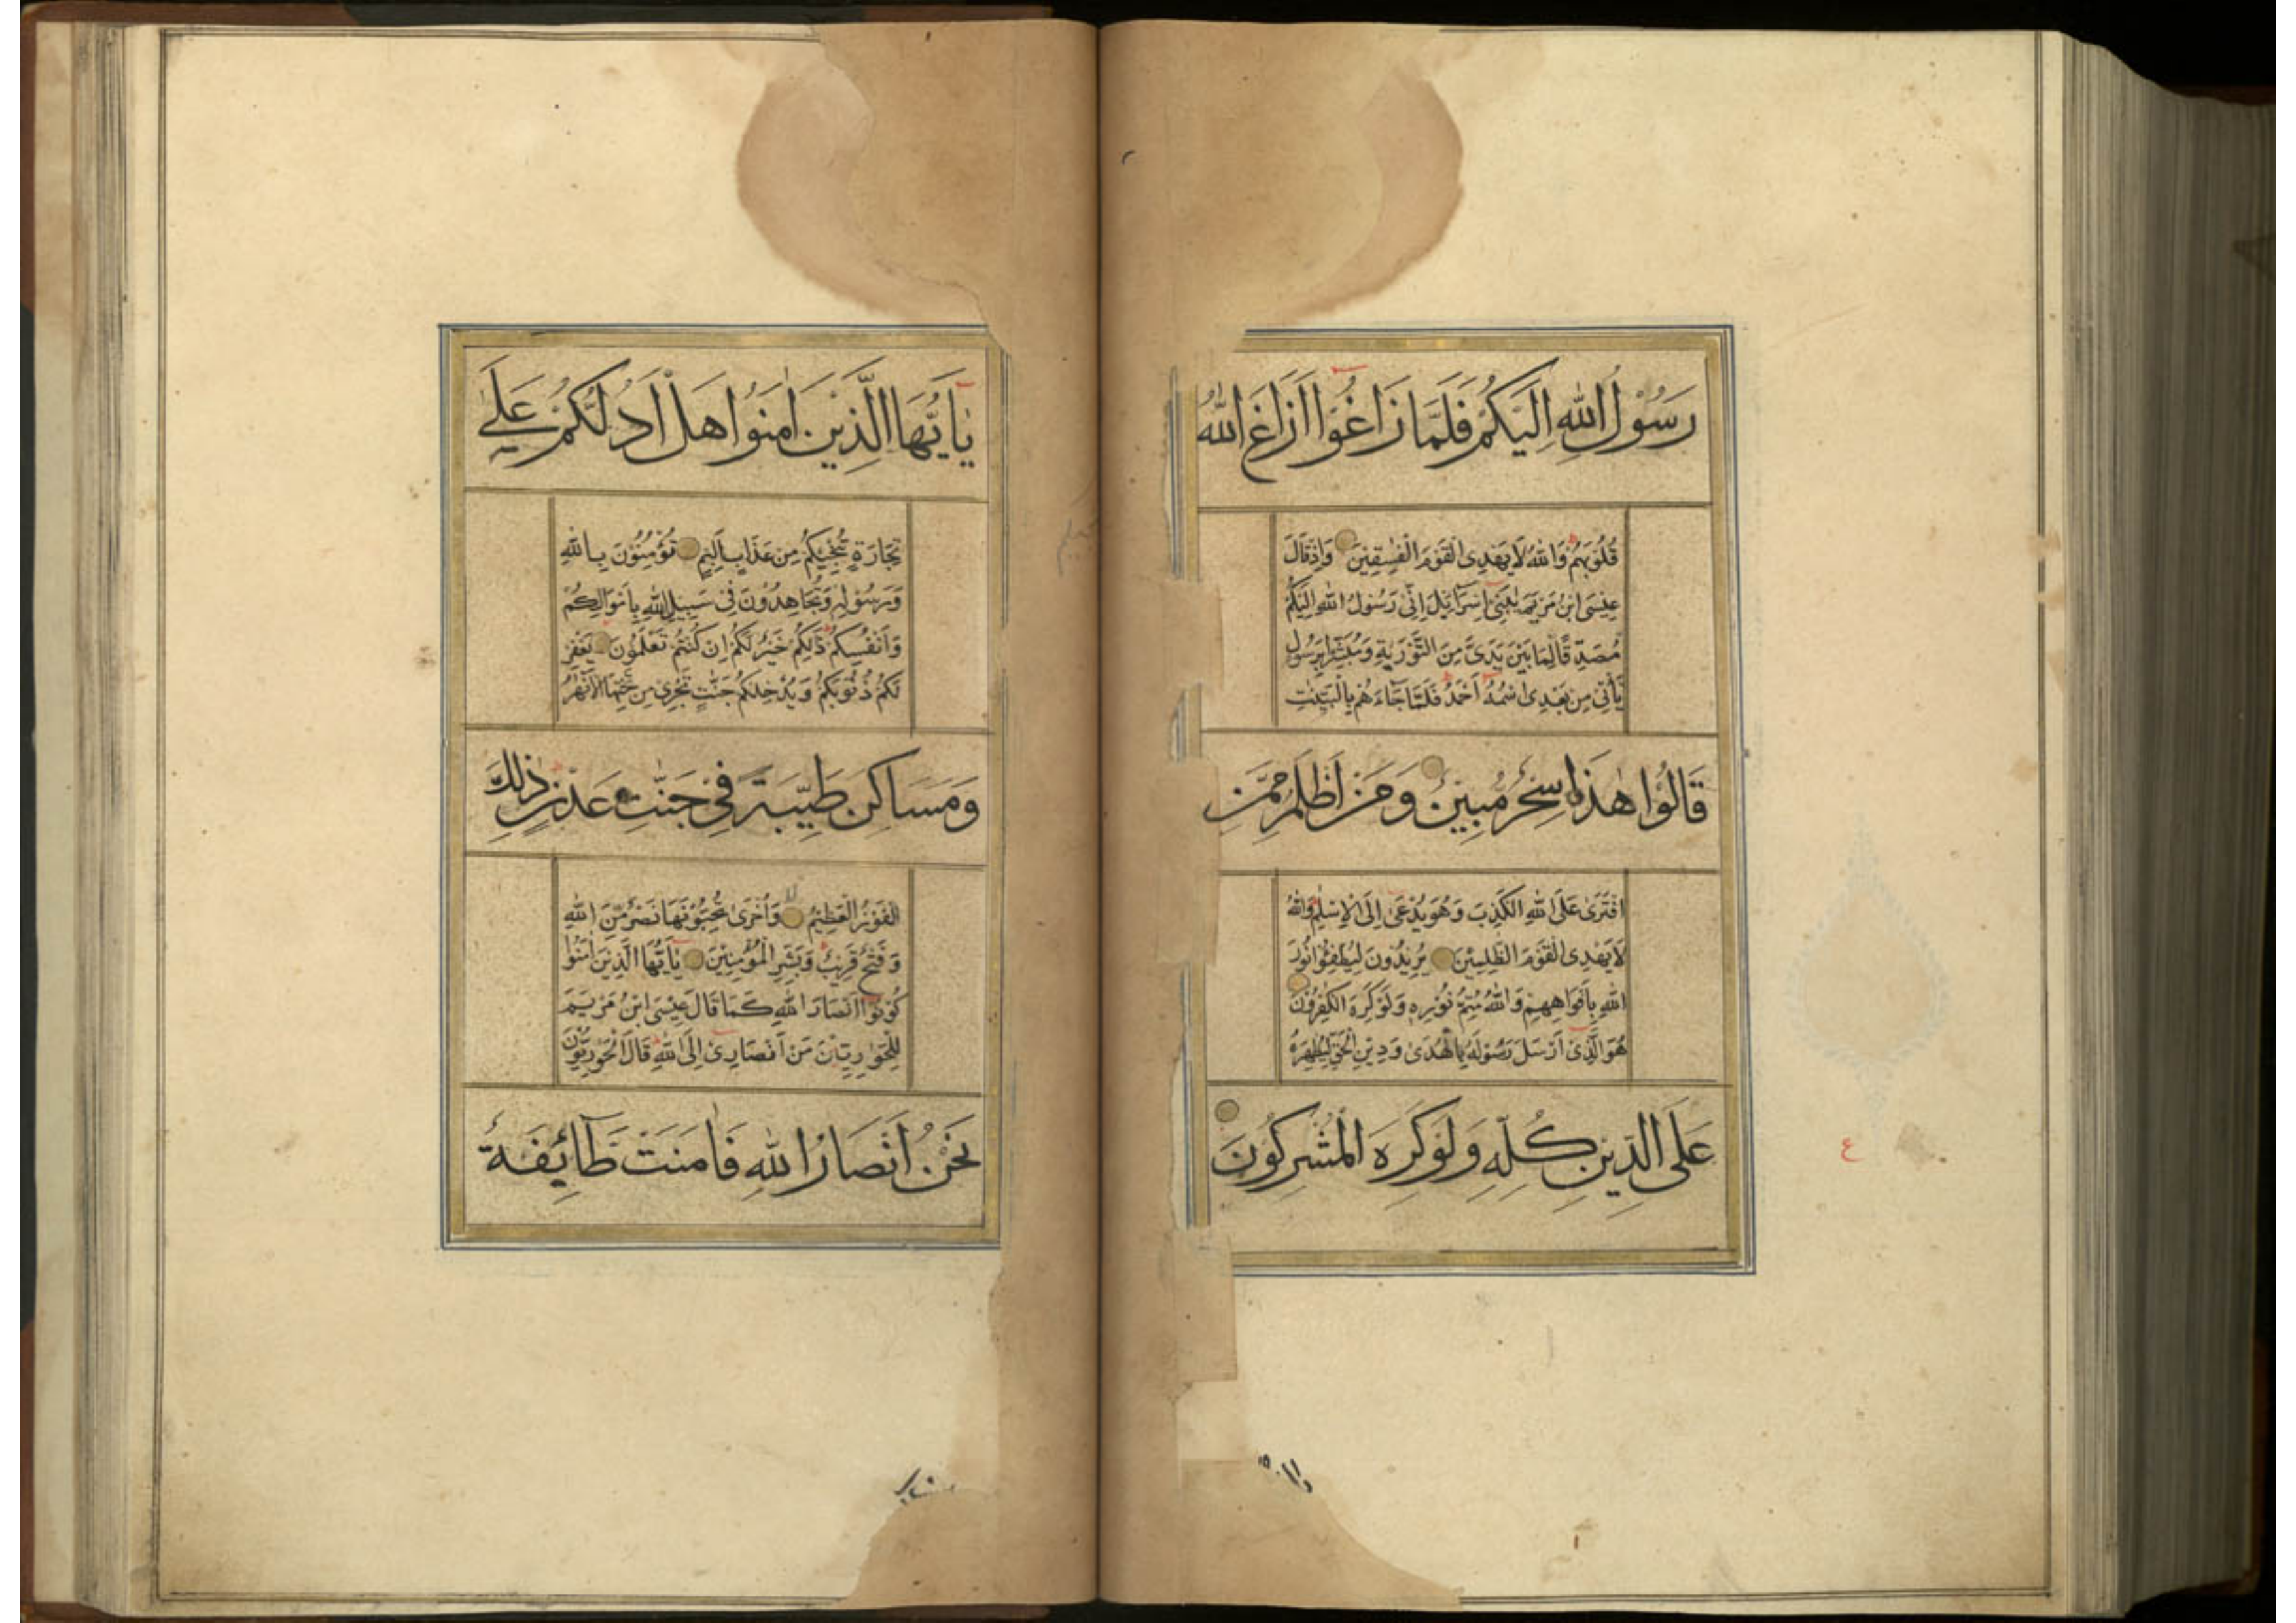 رَسُوْلُ اللهِ اِلَيْكُمْ فَلَمَّا زَاغُوْا اَزَاغَ اللهُ
قُلُوْبَهُمْ وَاللهُ لَا يَهْدِى الْقَوْمَ الْفٰسِقِيْنَ وَاِذْ قَالَ
عِيْسَى ابْنُ مَرْيَمَ يٰبَنِىْ اِسْرَآئِيْلَ اِنِّىْ رَسُوْلُ اللهِ اِلَيْكُمْ
مُصَدِّقًا لِمَا بَيْنَ يَدَىَّ مِنَ التَّوْرٰيةِ وَمُبَشِّرًا بِرَسُوْلٍ
يَأْتِىْ مِنْ بَعْدِى اسْمُهُ اَحْمَدُ فَلَمَّا جَآءَهُمْ بِالْبَيِّنٰتِ
قَالُوْا هٰذَا سِحْرٌ مُبِيْنٌ وَمَنْ اَظْلَمُ مِمَّنِ
افْتَرٰى عَلَى اللهِ الْكَذِبَ وَهُوَ يُدْعٰى اِلَى الْاِسْلٰمِ وَاللهُ
لَا يَهْدِى الْقَوْمَ الظّٰلِمِيْنَ يُرِيْدُوْنَ لِيُطْفِئُوْا نُوْرَ
اللهِ بِاَفْوَاهِهِمْ وَاللهُ مُتِمُّ نُوْرِهٖ وَلَوْ كَرِهَ الْكٰفِرُوْنَ
هُوَ الَّذِىْ اَرْسَلَ رَسُوْلَهُ بِالْهُدٰى وَدِيْنِ الْحَقِّ لِيُظْهِرَهُ
عَلَى الدِّيْنِ كُلِّهِ وَلَوْ كَرِهَ الْمُشْرِكُوْنَ
ع
يٰاَيُّهَا الَّذِيْنَ اٰمَنُوْا هَلْ اَدُلُّكُمْ عَلٰى
تِجَارَةٍ تُنْجِيْكُمْ مِنْ عَذَابٍ اَلِيْمٍ تُؤْمِنُوْنَ بِاللهِ
وَرَسُوْلِهِ وَتُجَاهِدُوْنَ فِىْ سَبِيْلِ اللهِ بِاَمْوَالِكُمْ
وَاَنْفُسِكُمْ ذٰلِكُمْ خَيْرٌ لَكُمْ اِنْ كُنْتُمْ تَعْلَمُوْنَ يَغْفِرْ
لَكُمْ ذُنُوْبَكُمْ وَيُدْخِلْكُمْ جَنّٰتٍ تَجْرِىْ مِنْ تَحْتِهَا الْاَنْهٰرُ
وَمَسَاكِنَ طَيِّبَةً فِىْ جَنّٰتِ عَدْنٍ ذٰلِكَ
الْفَوْزُ الْعَظِيْمُ وَاُخْرٰى تُحِبُّوْنَهَا نَصْرٌ مِّنَ اللهِ
وَفَتْحٌ قَرِيْبٌ وَبَشِّرِ الْمُؤْمِنِيْنَ يٰاَيُّهَا الَّذِيْنَ اٰمَنُوْا
كُوْنُوْا اَنْصَارَ اللهِ كَمَا قَالَ عِيْسَى ابْنُ مَرْيَمَ
لِلْحَوَارِيّٖنَ مَنْ اَنْصَارِىْ اِلَى اللهِ قَالَ الْحَوَارِيُّوْنَ
نَحْنُ اَنْصَارُ اللهِ فَاٰمَنَتْ طَآئِفَةٌ